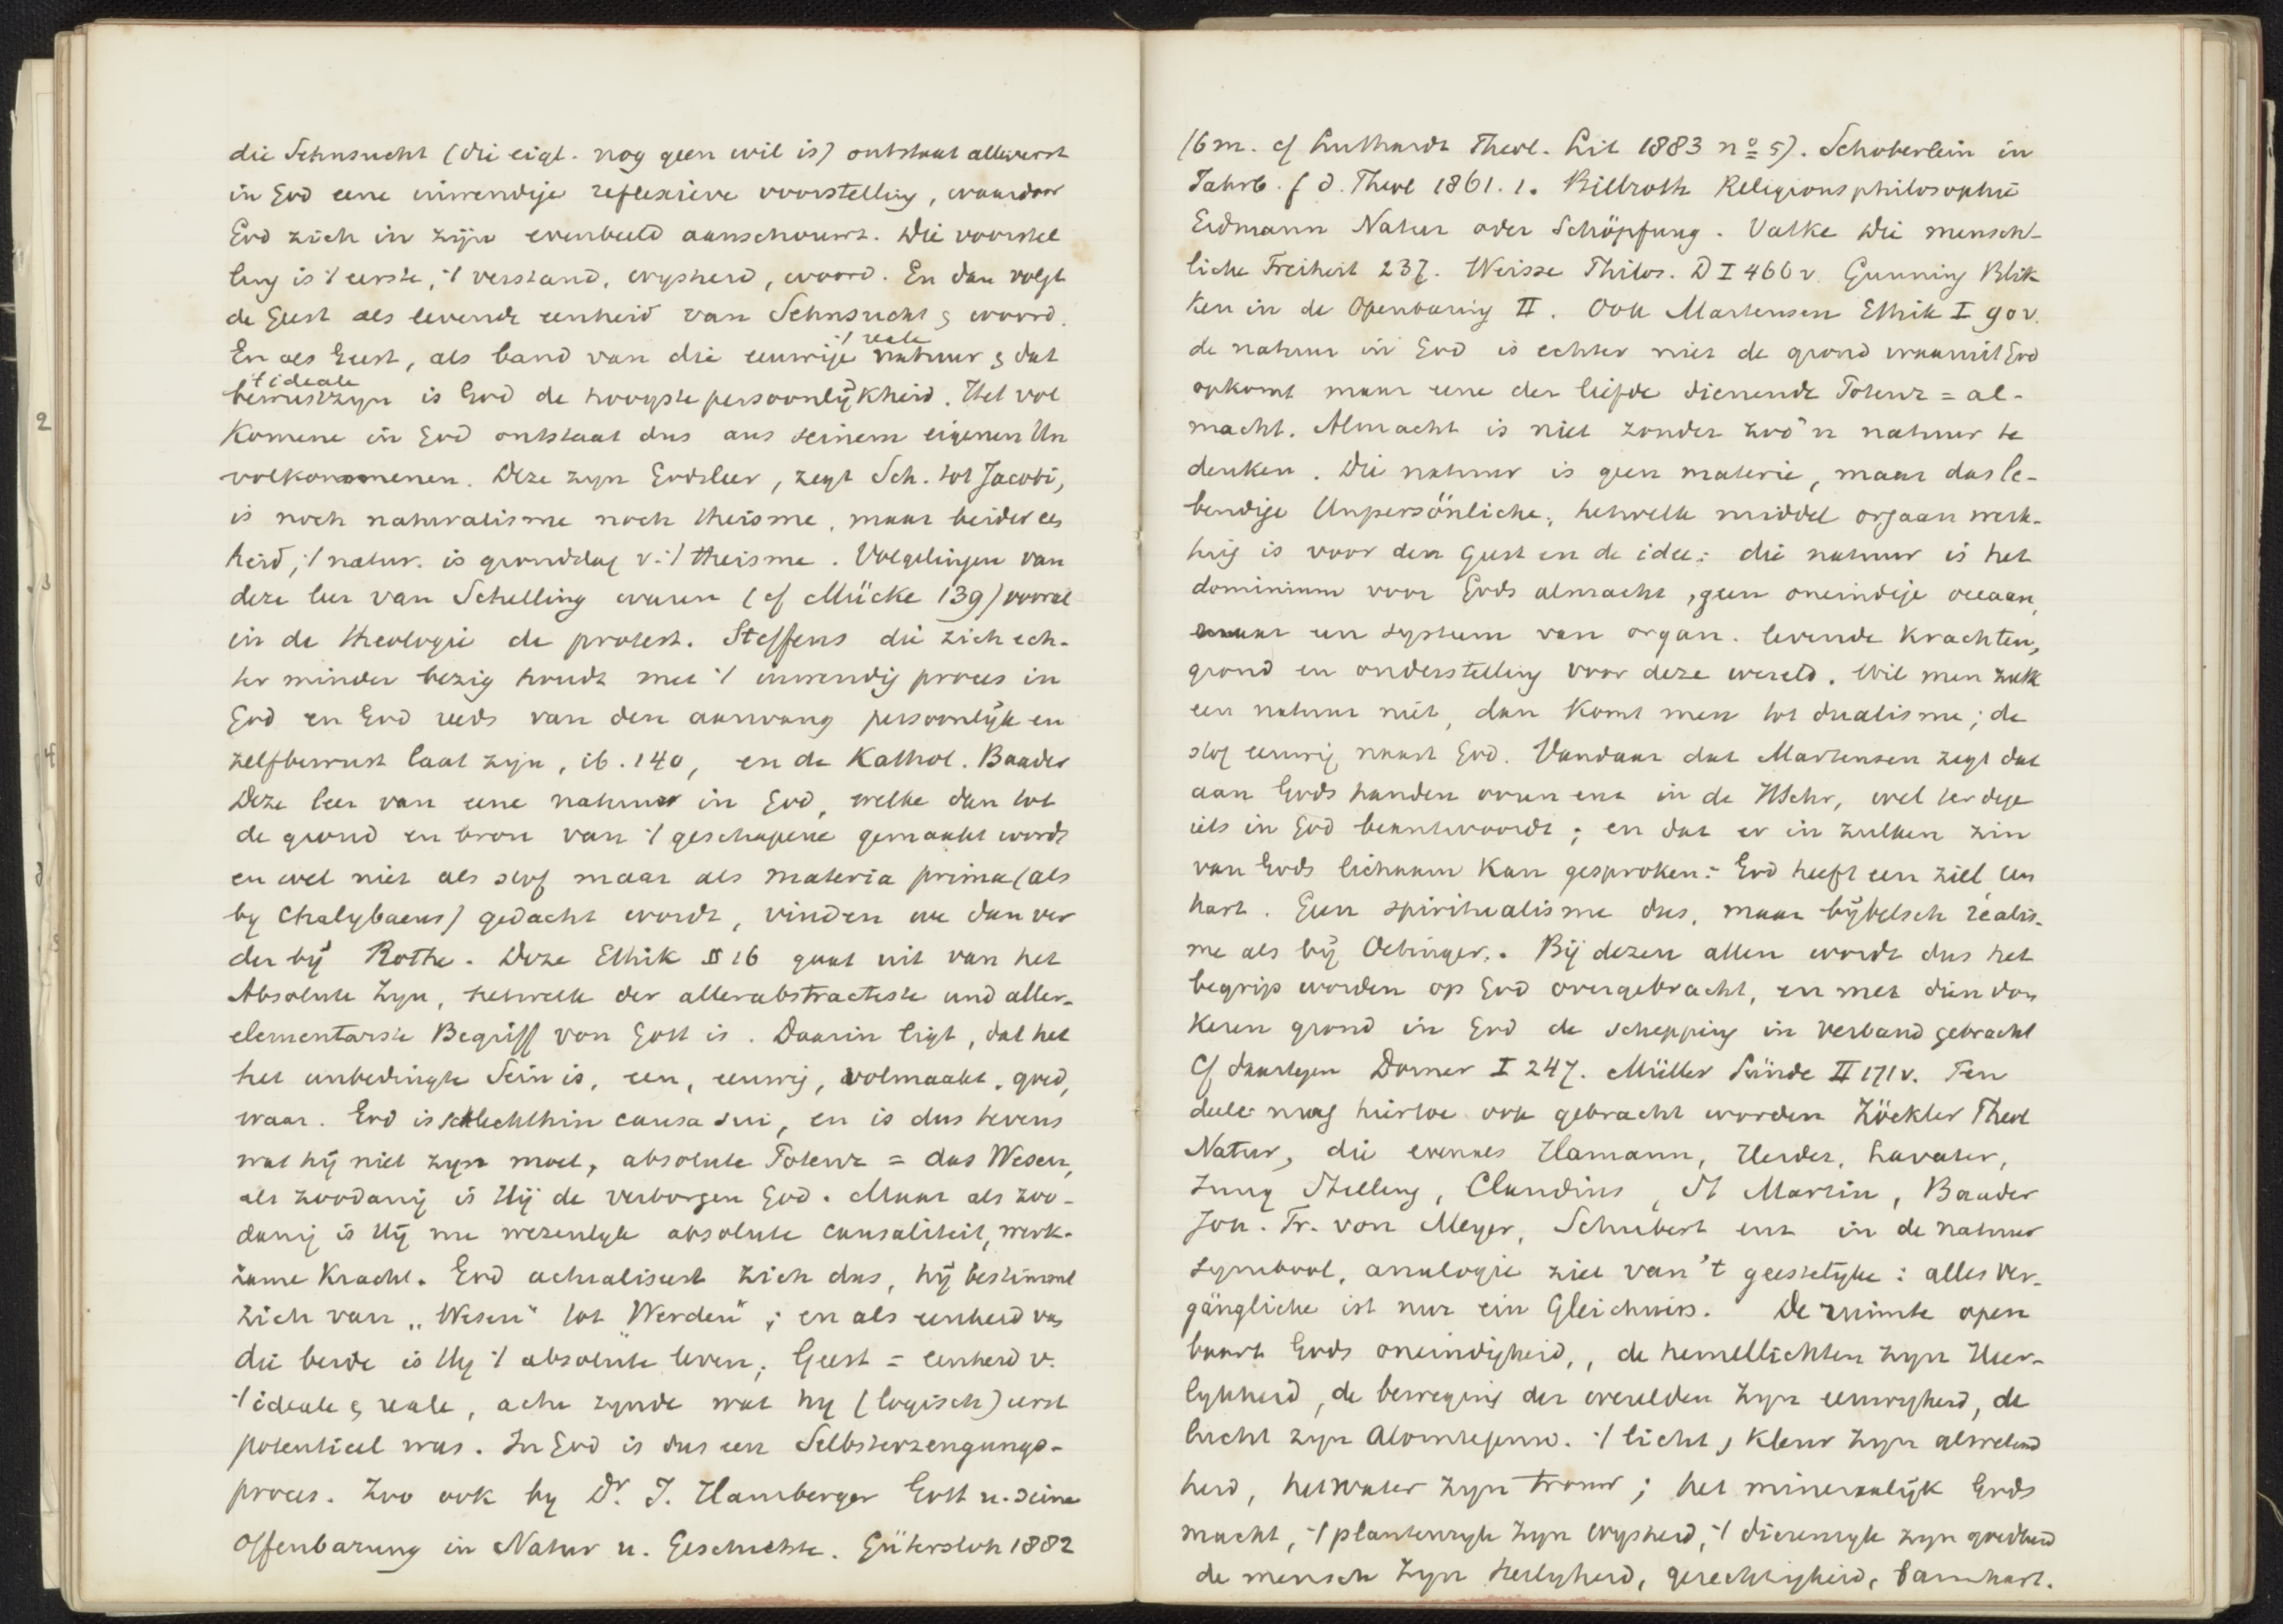 die Sehnsucht (die eigl. nog geen wil is) ontstaat allereerst
in God eene inwendige reflexieve voorstelling, waardoor
God zich in zijn evenbeeld aanschouwt. Die voorstel
ling is 't eerste, 't verstand, wysheid, woord. En dan volgt
de Geest als levende eenheid van Sehnsucht & woord.
't reale
En als Geest, als band van die eeuwige natuur & dat
't ideale
bewustzyn is God de hoogste persoonlijkheid. Het vol
komene in God ontstaat dus aus seinem eigenen Un
volkommenen. Deze zyn Godsleer, zegt Sch. tot Jacobi,
is noch naturalisme noch theisme, maar beider
heid; 't natur. is grondslag v. 't theisme. Volgelingen van
deze leer van Schelling waren (cf Mücke 139) vooral
in de theologie de protest. Steffens die zich ech-
ter minder bezig houdt met 't inwendig proces in
God en God reeds van den aanvang persoonlijk en
zelfbewust laat zijn, ib. 140, en de Kathol. Baader
Deze leer van eene natuur in God, welke dan tot
de grond en bron van 't geschapene gemaakt wordt
en wel niet als stof maar als materia prima (als
by Chalybaeus) gedacht wordt, vinden we dan ver
der bij Rothe. Deze Ethik § 16 gaat uit van het
Absolute Zyn, hetwelk der allerabstracteste und aller-
elementarste Begriff von Gott is. Daarin ligt, dat het
het unbedingte Sein is, een, eeuwig, volmaakt, goed,
waar. God is schlechthin causa sui, en is dus tevens
wat hij niet zyn moet, absolute Potenz = das Wesen,
als zoodanig is Hij de verborgen God. Maar als zoo-
danig is Hij nu wezenlyk absolute causaliteit, werk-
zame Kracht. God actualiseert zich dus, hij bestimmt
zich van „Wesen" tot „Werden"; en als eenheid van
die beide is Hy 't absolute leven; Geest = eenheid v.
't ideale & reale, actu zynde wat hy (logisch) eerst
potentieel was. In God is dus een Selbsterzeugungs-
proces. Zoo ook by Dr. J. Hamberger Gott u. seine
Offenbarung in Natur u. Geschichte. Gütersloh 1882
(6 m. cf Luthardt Theol. Lit 1883 no 5). Schoberlein in
Jahrb. f d. Theol 1861. 1. Billroth Religionsphilosophie
Erdmann Natur oder Schöpfung. Vatke Die mensch-
liche Freiheit 237. Weisse Philos. D I 466 v. Gunning Blik
ken in de Openbaring II. Ook Martensen Ethik I 90 v.
de natuur in God is echter niet de grond waaruit God
opkomt maar eene der liefde dienende Potenz = al-
macht. Almacht is niet zonder zoo'n natuur te
denken. Die natuur is geen materie, maar das le-
bendige Unpersönliche, hetwelk middel orgaan werk-
tuig is voor den geest en de idee: die natuur is het
dominium voor Gods almacht, geen oneindige oceaan,
maar een systeem van organ. levende krachten,
grond en onderstelling voor deze wereld. Wil men zulk
een natuur niet, dan komt men tot dualisme; de
stof eeuwig naast God. Vandaar dat Martensen zegt dat
aan Gods handen ooren enz in de HSchr, wel terdege
iets in God beantwoordt; en dat er in zulken zin
van Gods lichaam kan gesproken: God heeft een ziel, een
hart. Geen spiritualisme dus, maar bijbelsch realis-
me als bij Oetinger. Bij dezen allen wordt dus het
begrip worden op God overgebracht, en met dien don
keren grond in God de schepping in verband gebracht
Cf daartegen Dorner I 247. Müller Sünde II 171 v. Ten
deele mag hiertoe ook gebracht worden Zöckler Theol
Natur, die evenals Hamann, Herder, Lavater,
Jung Stilling, Claudius, St Martin, Baader
Joh. Fr. von Meyer, Schubert enz in de natuur
symbool, analogie ziet van 't geestelijke: alles Ver-
gängliche ist nur ein Gleichniss. De ruimte open
baart Gods oneindigheid, de hemellichten zyn Heer-
lykheid, de beweging der werelden zyn eeuwigheid, de
lucht zyn Alomtegenw. 't licht, kleur zyn alwetend
heid, het water zyn trouw; het mineraalrijk Gods
macht, 't plantenryk zyn wysheid, 't dierenryk zyn goedheid
de mensch zyn heiligheid, gerechtigheid, barmhart.
2
3
4